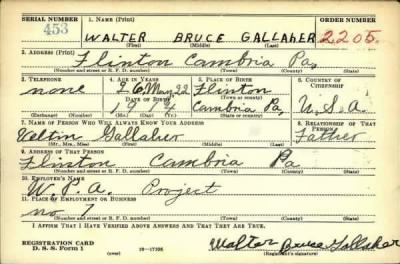 SERIAL NUMBER 1. NAME (Print) ORDER NUMBER
453 WALTER BRUCE GALLAHER 2205.
(First) (Middle) (Last)
2. ADDRESS (Print)
Flinton Cambria Pa,
(Number and street or R. F. D. number) (Town) (County) (State)
3. TELEPHONE 4. AGE IN YEARS 5. PLACE OF BIRTH 6. COUNTRY OF CITIZENSHIP
none 26 May 22 Flinton
DATE OF BIRTH (Town or county)
1914 Cambria Pa, U.S.A
(Exchange) (Number) (Mo.) (Day) (Yr.) (State or country)
7. NAME OF PERSON WHO WILL ALWAYS KNOW YOUR ADDRESS 8. RELATIONSHIP OF THAT PERSON
Gallaher Father
(Mr., Mrs., Miss) (First) (Middle) (Last)
9. ADDRESS OF THAT PERSON
Flinton Cambria Pa
(Number and street or R. F. D. number) (Town) (County) (State)
10. EMPLOYER'S NAME
W.P.A. Project
11. PLACE OF EMPLOYMENT OR BUSINESS
no 7
(Number and street or R. F. D. number) (Town) (County) (State)
I AFFIRM THAT I HAVE VERIFIED ABOVE ANSWERS AND THAT THEY ARE TRUE.
REGISTRATION CARD
D. S. S. FORM 1 (over) 16—17105 Walter Bruce Gallaher